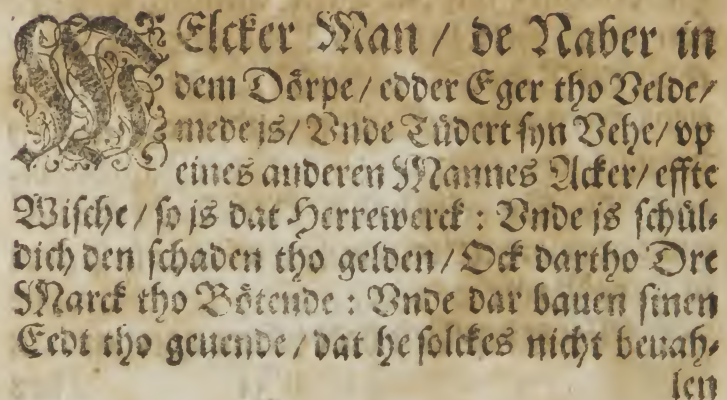 WElcker Man / de Naber in
dem Dörpe / edder Eger tho Velde /
mede js / Vnde Tüdert syn Vehe / vp
eines anderen Mannes Acker / effte
Wische / so js dat Herrewerck : Vnde js schül-
dich den schaden tho gelden / Ock dartho Dre
Marck tho Bötende : Vnde dar bauen sinen
Eedt tho geuende / dat he solckes nicht beuah-
len